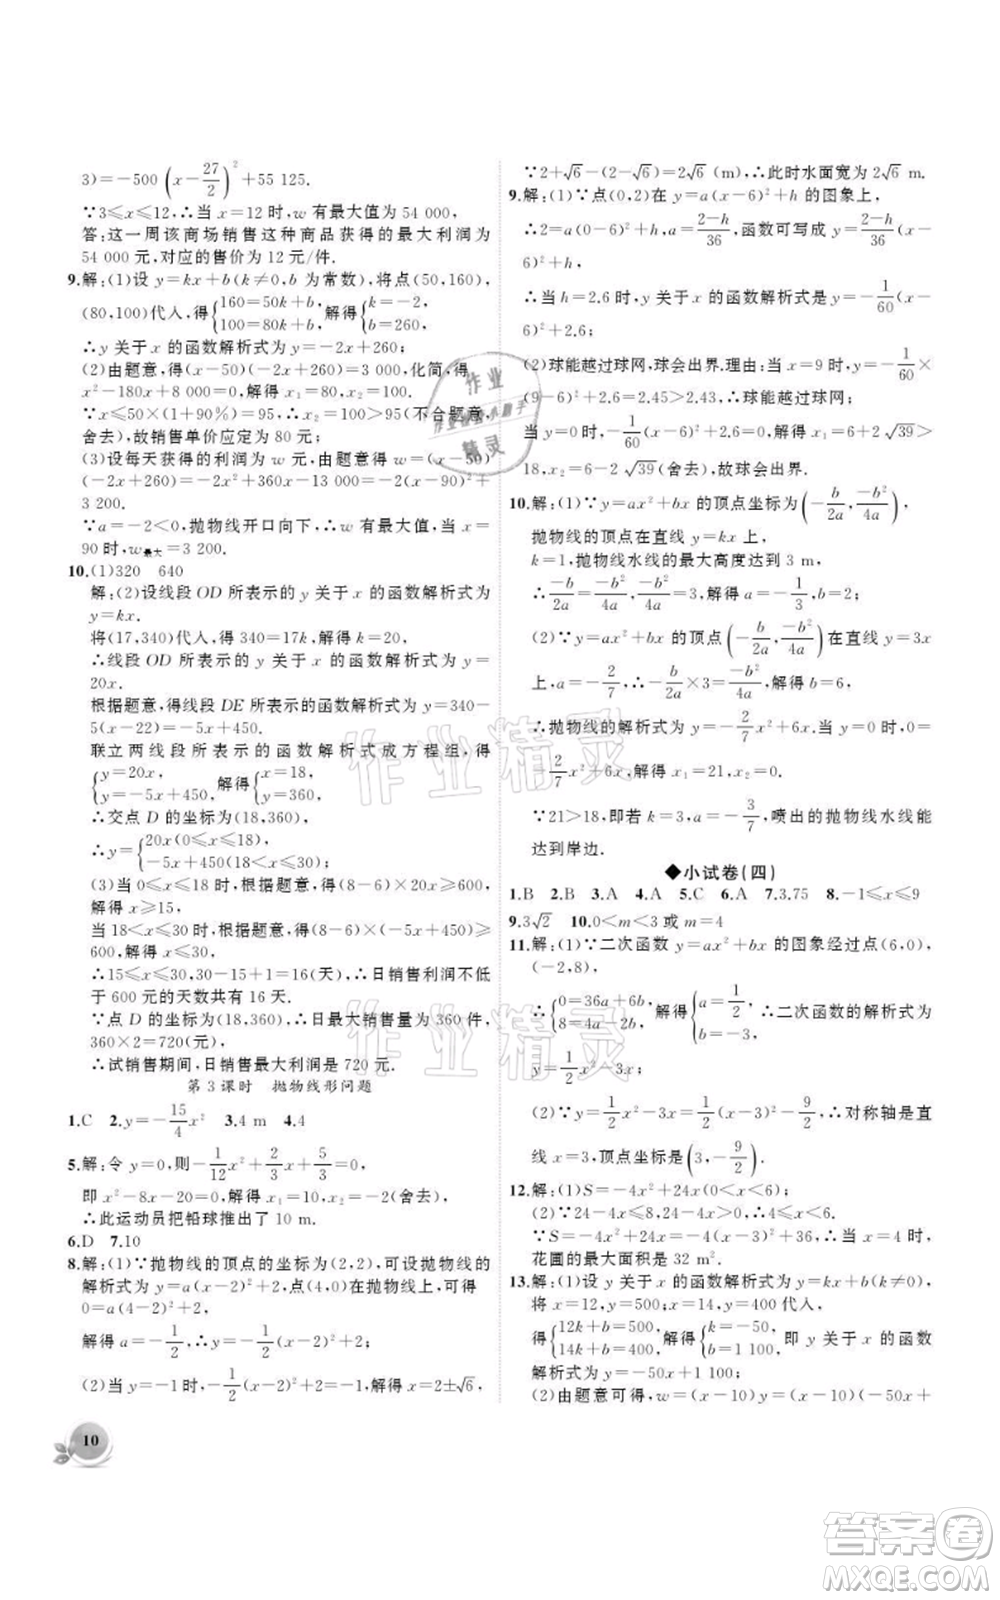 3)=-500(x-27/2)²+55 125.
∵3≤x≤12,∴当 x=12时,w有最大值为54 000,
答:这一周该商场销售这种商品获得的最大利润为
54 000元,对应的售价为12元/件.
9.解:(1)设 y=kx+b(k≠0,b为常数),将点(50,160),
(80,100)代人,得{160=50k+b, 100=80k+b,解得{k=-2, b=260,
∴y关于x的函数解析式为y=-2x+260;
(2)由题意,得(x-50)(-2x+260)=3 000,化简,得
x²-180x+8 000=0,解得 x₁=80,x₂=100.
∵x≤50×(1+90%)=95,∴x₂=100>95(不合题意,
舍去),故销售单价应定为80元;
(3)设每天获得的利润为w元,由题意得w=(x-50)
(-2x+260)=-2x²+360x-13 000=-2(x-90)²+
3 200.
∵a=-2<0,抛物线开口向下,∴w有最大值,当x=
90时,w最大=3 200.
10.(1)320 640
解:(2)设线段OD所表示的y关于x的函数解析式为
y=kx.
将(17,340)代人,得340=17k,解得k=20,
∴线段OD所表示的y关于x的函数解析式为y=
20x.
根据题意,得线段DE所表示的函数解析式为y=340-
5(x-22)=-5x+450.
联立两线段所表示的函数解析式成方程组,得
{y=20x, y=-5x+450,解得{x=18, y=360,
∴交点D的坐标为(18,360),
∴y={20x(0≤x≤18), -5x+450(18<x≤30);
(3)当0≤x≤18时,根据题意,得(8-6)×20x≥600,
解得x≥15;
当18<x≤30时,根据题意,得(8-6)×(-5x+450)
≥600,解得x≤30.
∴15≤x≤30,30-15+1=16(天),∴日销售利润不低
于600元的天数共有16天.
∵点D的坐标为(18,360),∴日最大销售量为360件,
360×2=720(元),
∴试销售期间,日销售最大利润是720元.
第3课时 抛物线形问题
1.C 2.y=-15/4x² 3.4 m 4.4
5.解:令y=0,则-1/12x²+2/3x+5/3=0,
即x²-8x-20=0,解得x₁=10,x₂=-2(舍去),
∴此运动员把铅球推出了10 m.
6.D 7.10
8.解:(1)∵抛物线的顶点的坐标为(2,2),可设抛物线的
解析式为y=a(x-2)²+2,点(4,0)在抛物线上,可得
0=a(4-2)²+2,
解得a=-1/2,∴y=-1/2(x-2)²+2;
(2)当y=-1时,-1/2(x-2)²+2=-1,解得x=2±√6,
∵2+√6-(2-√6)=2√6(m),∴此时水面宽为2√6 m.
9.解:(1)∵点(0,2)在y=a(x-6)²+h的图象上,
∴2=a(0-6)²+h,a=2-h/36,函数可写成y=2-h/36(x-
6)²+h,
∴当h=2.6时,y关于x的函数解析式是y=-1/60(x-
6)²+2.6;
(2)球能越过球网,球会出界.理由:当x=9时,y=-1/60×
(9-6)²+2.6=2.45>2.43,∴球能越过球网;
当y=0时,-1/60(x-6)²+2.6=0,解得x₁=6+2√39>
18,x₂=6-2√39(舍去),故球会出界.
10.解:(1)∵y=ax²+bx的顶点坐标为(-b/2a,-b²/4a),
抛物线的顶点在直线y=kx上,
k=1,抛物线水线的最大高度达到3 m,
∴-b/2a=-b²/4a=3,解得a=-1/3,b=2;
(2)∵y=ax²+bx的顶点(-b/2a,-b²/4a)在直线y=3x
上,a=-2/7,∴-b/2a×3=-b²/4a,解得b=6,
∴抛物线的解析式为y=-2/7x²+6x.当y=0时,0=
-2/7x²+6x,解得x₁=21,x₂=0.
∵21>18,即若k=3,a=-2/7,喷出的抛物线水线能
达到岸边.
◆小试卷(四)
1.B 2.B 3.A 4.A 5.C 6.A 7.3.75 8.-1≤x≤9
9.3√2 10.0<m<3或m=4
11.解:(1)∵二次函数y=ax²+bx的图象经过点(6,0),
(-2,8),
∴{0=36a+6b, 8=4a-2b,解得{a=1/2, b=-3,∴二次函数的解析式为
y=1/2x²-3x;
(2)∵y=1/2x²-3x=1/2(x-3)²-9/2,∴对称轴是直
线x=3,顶点坐标是(3,-9/2).
12.解:(1)S=-4x²+24x(0<x<6);
(2)∵0<24-4x≤8,∴4≤x<6.
∵S=-4x²+24x=-4(x-3)²+36,∴当x=4时,
花圃的最大面积是32 m².
13.解:(1)设y关于x的函数解析式为y=kx+b(k≠0),
将x=12,y=500;x=14,y=400代人,
得{12k+b=500, 14k+b=400,解得{k=-50, b=1 100,即y关于x的函数
解析式为y=-50x+1 100;
(2)由题意可得,w=(x-10)y=(x-10)(-50x+
10
作业精灵
作业精灵
作业
精灵
答案圈
MXQE.COM